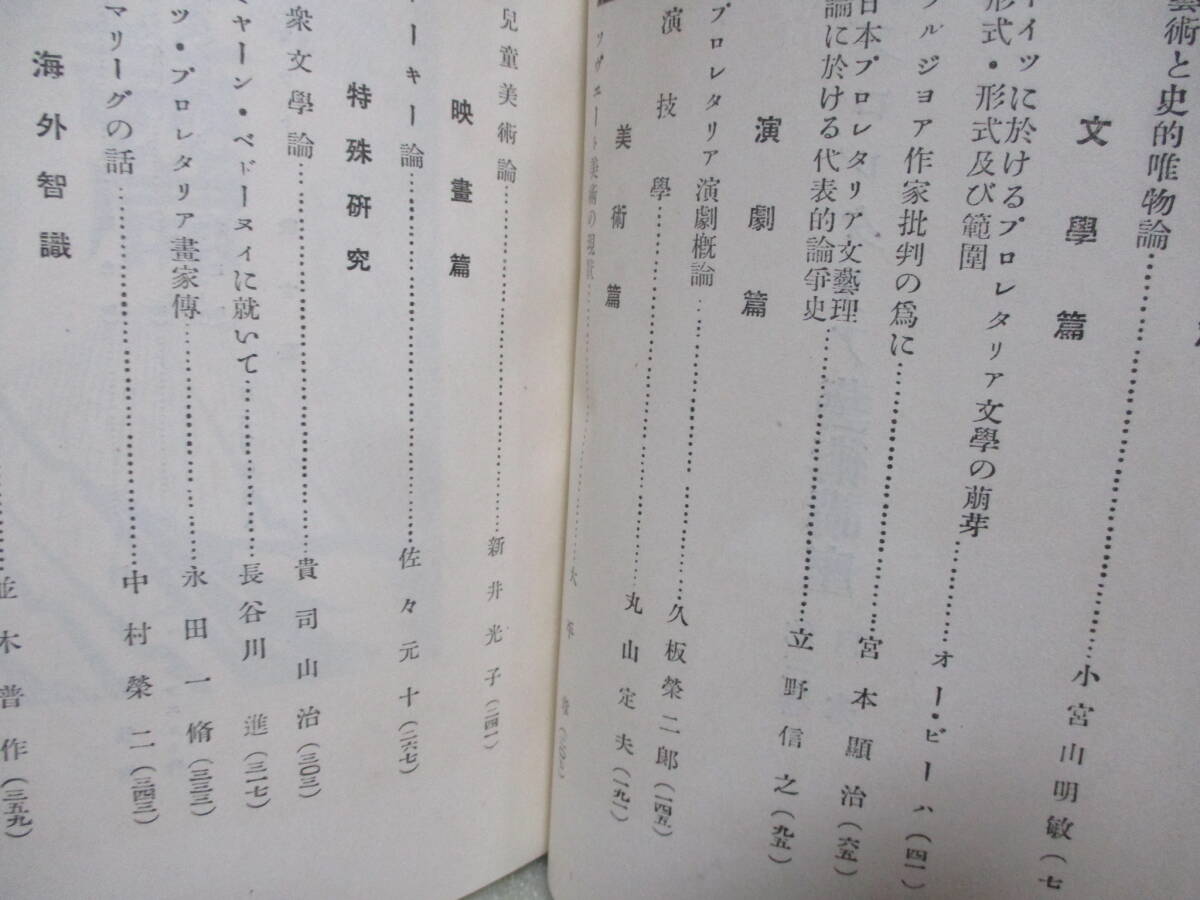 藝術と史的唯物論……小宮山明敏(七
文學篇
イツに於けるプロレタリア文學の萠芽
形式・形式及び範圍……オー・ビーハ(四一)
ルジヨア作家批判の爲に……宮本顯治(六五)
日本プロレタリア文藝理
論に於ける代表的論爭史……立野信之(九五)
演劇篇
プロレタリア演劇槪論……久板榮二郎(一四五)
演技學……丸山定夫(一九一)
美術篇
ソヴエート美術の現狀……大
兒童美術論……新井光子(二四一)
映畫篇
ーキー論……佐々元十(二六七)
特殊硏究
衆文學論……貴司山治(三〇三)
ャーン・ベドーヌイに就いて……長谷川進(三一七)
ツ・プロレタリア畫家傳……永田一脩(三三三)
マリーグの話……中村榮二(三四三)
海外智識
……並木普作(三五九)